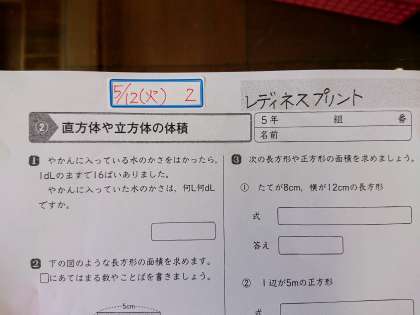 5/12(火) 2
レディネスプリント
② 直方体や立方体の体積
5年 組 番
名前
1 やかんに入っている水のかさをはかったら,
1dLのますで16ぱいありました。
やかんに入っていた水のかさは,何L何dL
ですか。
2 下の図のような長方形の面積を求めます。
□にあてはまる数やことばを書きましょう。
5cm
3 次の長方形や正方形の面積を求めましょう。
① たてが8cm,横が12cmの長方形
式
答え
② 1辺が5mの正方形
式